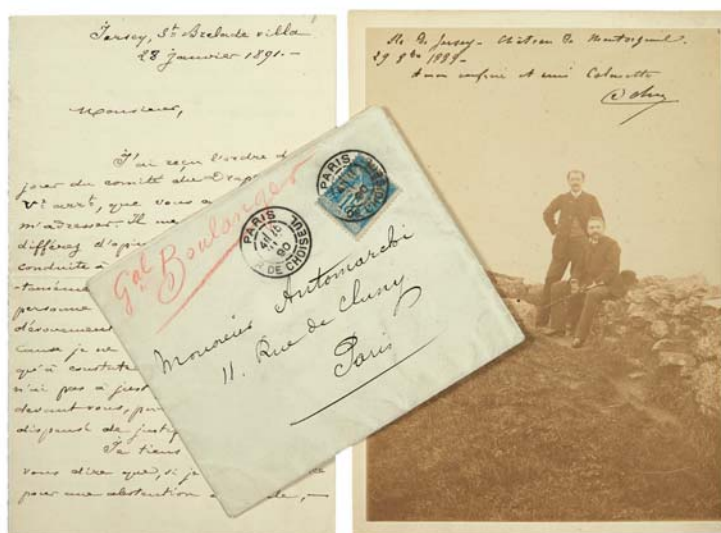 Jersey, St Brelade villa
28 Janvier 1891.—
Monsieur,
J'ai reçu l'ordre d
jour du comité du Drap
Ve arrt, que vous a
m'adresser. Il me
différez d'opin
conduite à
personne
dévouement
Cause je ne
qu'à constate
n'ai pas à just
devant vous, pu
dispensé de justif
Je tiens
vous dire que, si je
pour une abstention
Gal Boulanger
PARIS
90
R. DE CHOISEUL
PARIS
90
R. DE CHOISEUL
Monsieur Antomarchi
11. Rue de Cluny
Paris
Ile de Jersey - Château de Montorgueil.
29 8bre 1889-
A mon confrère et ami